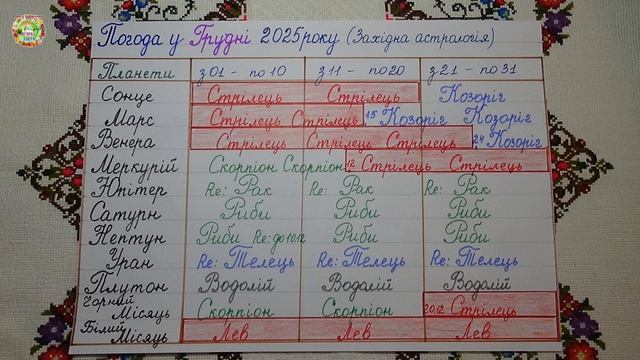 Погода у Грудні 2025 року (Західна астрологія)
Планети з 01 - по 10 з 11 - по 20 з 21 - по 31
Сонце Стрілець Стрілець Козоріг
Марс Стрілець Стрілець 15 Козоріг Козоріг
Венера Стрілець Стрілець Стрілець 24 Козоріг
Меркурій Скорпіон Скорпіон 12 Стрілець Стрілець
Юпітер Re: Рак Re: Рак Re: Рак
Сатурн Риби Риби Риби
Нептун Риби Re: до 10.12 Риби Риби
Уран Re: Телець Re: Телець Re: Телець
Плутон Водолій Водолій Водолій
Чорний
Місяць Скорпіон Скорпіон 20.12 Стрілець
Білий
Місяць Лев Лев Лев